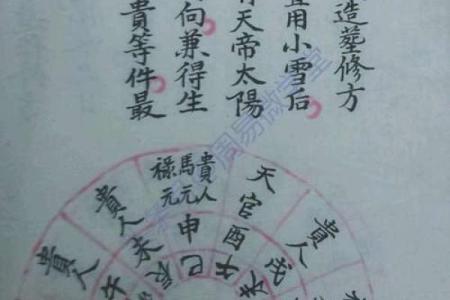 造塟修方
宜用小雪后
天帝太陽
向兼得生
貴等件最
周易
貴人
貴人
祿元
馬元
貴人
天官
貴人
午
未
申
酉
戌
巳
午
未